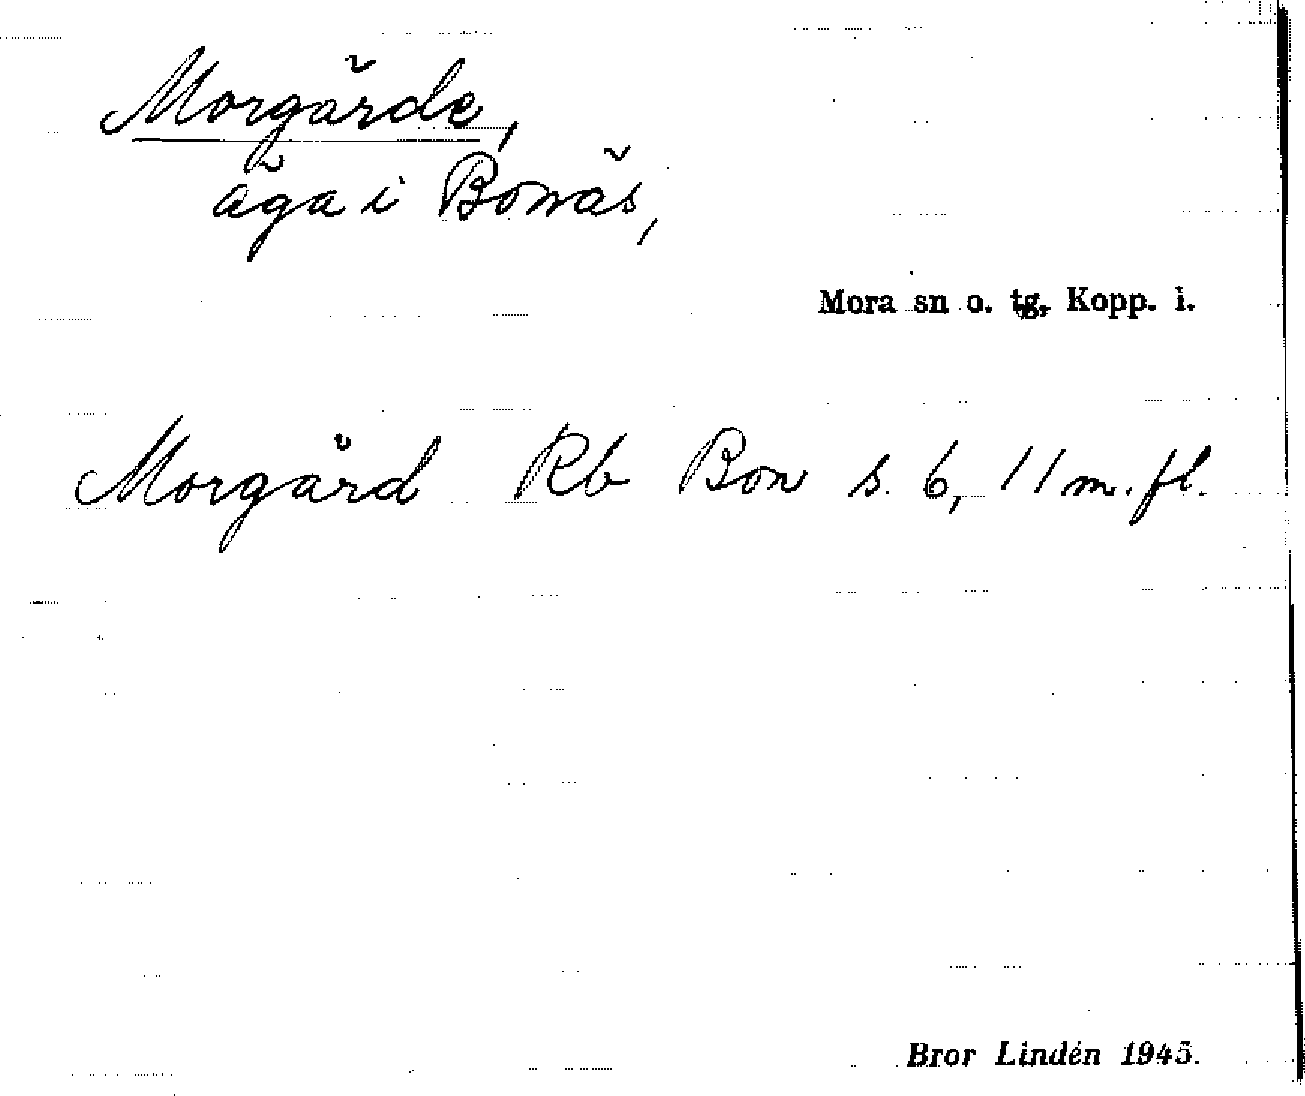 Morgärde,
äga i Bonäs,
Mora sn o. tg, Kopp. l.
Morgärd Rb Bon s. 6, 11 m. fl.
Bror Lindén 1945.